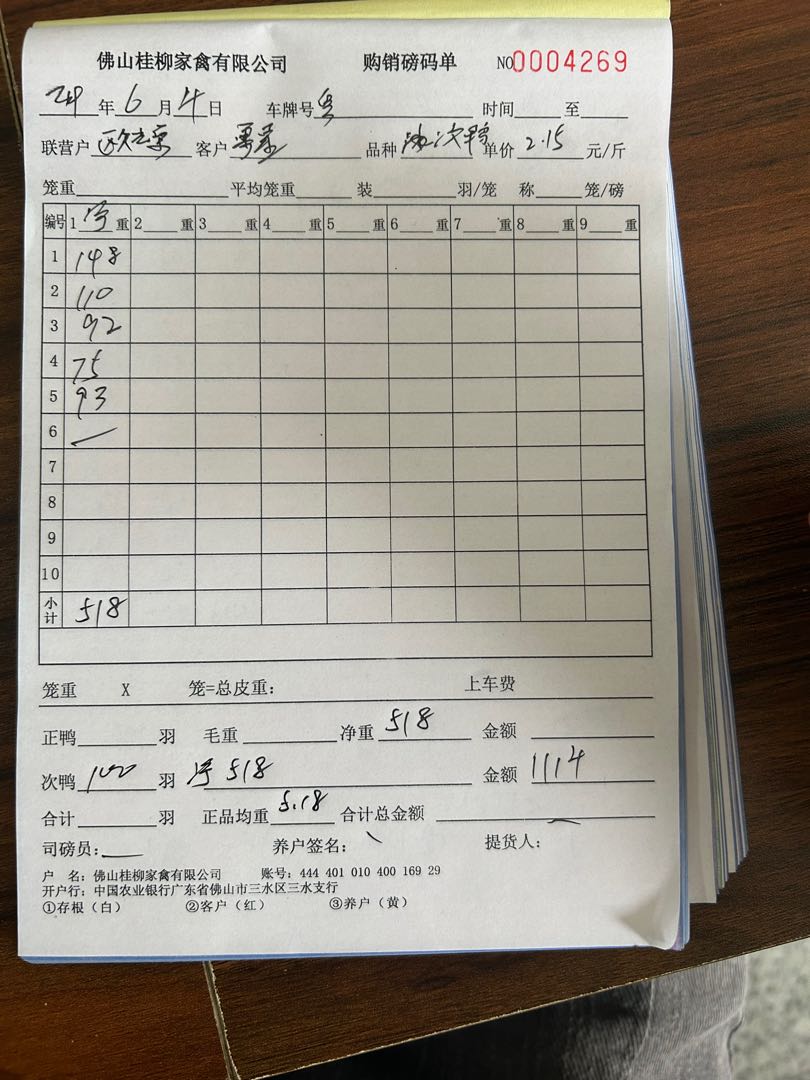 佛山桂柳家禽有限公司 购销磅码单 NO0004269
24年6月4日 车牌号 时间 至
联营户 客户 品种 次鸭 单价 2.15 元/斤
笼重 平均笼重 装 羽/笼 称 笼/磅
编号 1 净 重 2 重 3 重 4 重 5 重 6 重 7 重 8 重 9 重
1 148
2 110
3 92
4 75
5 93
6 —
7
8
9
10
小计 518
笼重 X 笼=总皮重: 上车费
正鸭 羽 毛重 净重 518 金额
次鸭 100 羽 净 518 金额 1114
合计 羽 正品均重 5.18 合计总金额
司磅员: 养户签名: 提货人:
户 名: 佛山桂柳家禽有限公司 账号: 444 401 010 400 169 29
开户行: 中国农业银行广东省佛山市三水区三水支行
①存根(白) ②客户(红) ③养户(黄)